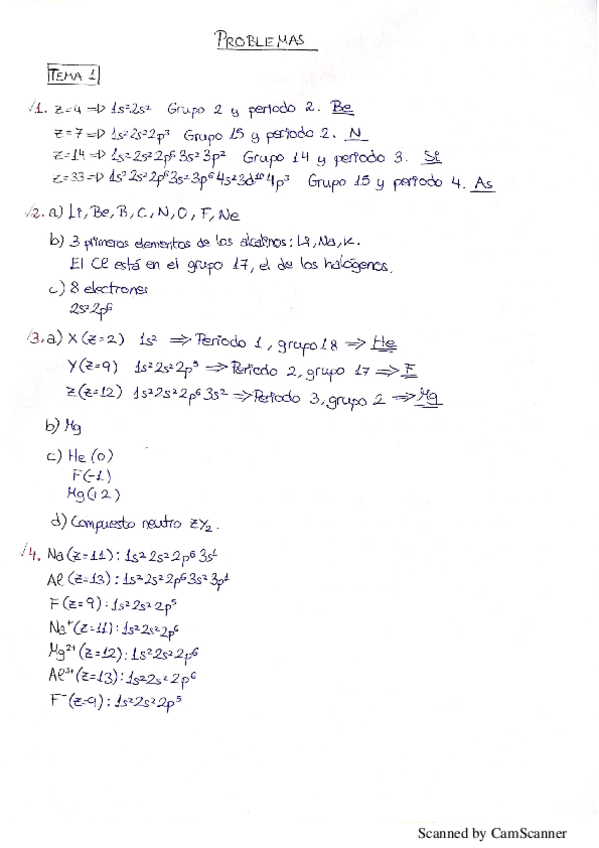 PROBLEMAS
TEMA 1
√1. z=4 => 1s²2s² Grupo 2 y periodo 2. Be
z=7 => 1s²2s²2p³ Grupo 15 y periodo 2. N
z=14 => 1s²2s²2p⁶3s²3p² Grupo 14 y periodo 3. Si
z=33 => 1s²2s²2p⁶3s²3p⁶4s²3d¹⁰4p³ Grupo 15 y periodo 4. As
√2. a) Li, Be, B, C, N, O, F, Ne
b) 3 primeros elementos de los alcalinos: Li, Na, K.
El Cl está en el grupo 17, el de los halógenos.
c) 8 electrones
2s²2p⁶
√3. a) X (z=2) 1s² => Periodo 1, grupo 18 => He
Y (z=9) 1s²2s²2p⁵ => Periodo 2, grupo 17 => F
Z (z=12) 1s²2s²2p⁶3s² => Periodo 3, grupo 2 => Mg
b) Mg
c) He (0)
F (-1)
Mg (+2)
d) Compuesto neutro ZY₂.
√4. Na (z=11): 1s²2s²2p⁶3s¹
Al (z=13): 1s²2s²2p⁶3s²3p¹
F (z=9): 1s²2s²2p⁵
Na⁺ (z=11): 1s²2s²2p⁶
Mg²⁺ (z=12): 1s²2s²2p⁶
Al³⁺ (z=13): 1s²2s²2p⁶
F⁻ (z=9): 1s²2s²2p⁵
Scanned by CamScanner